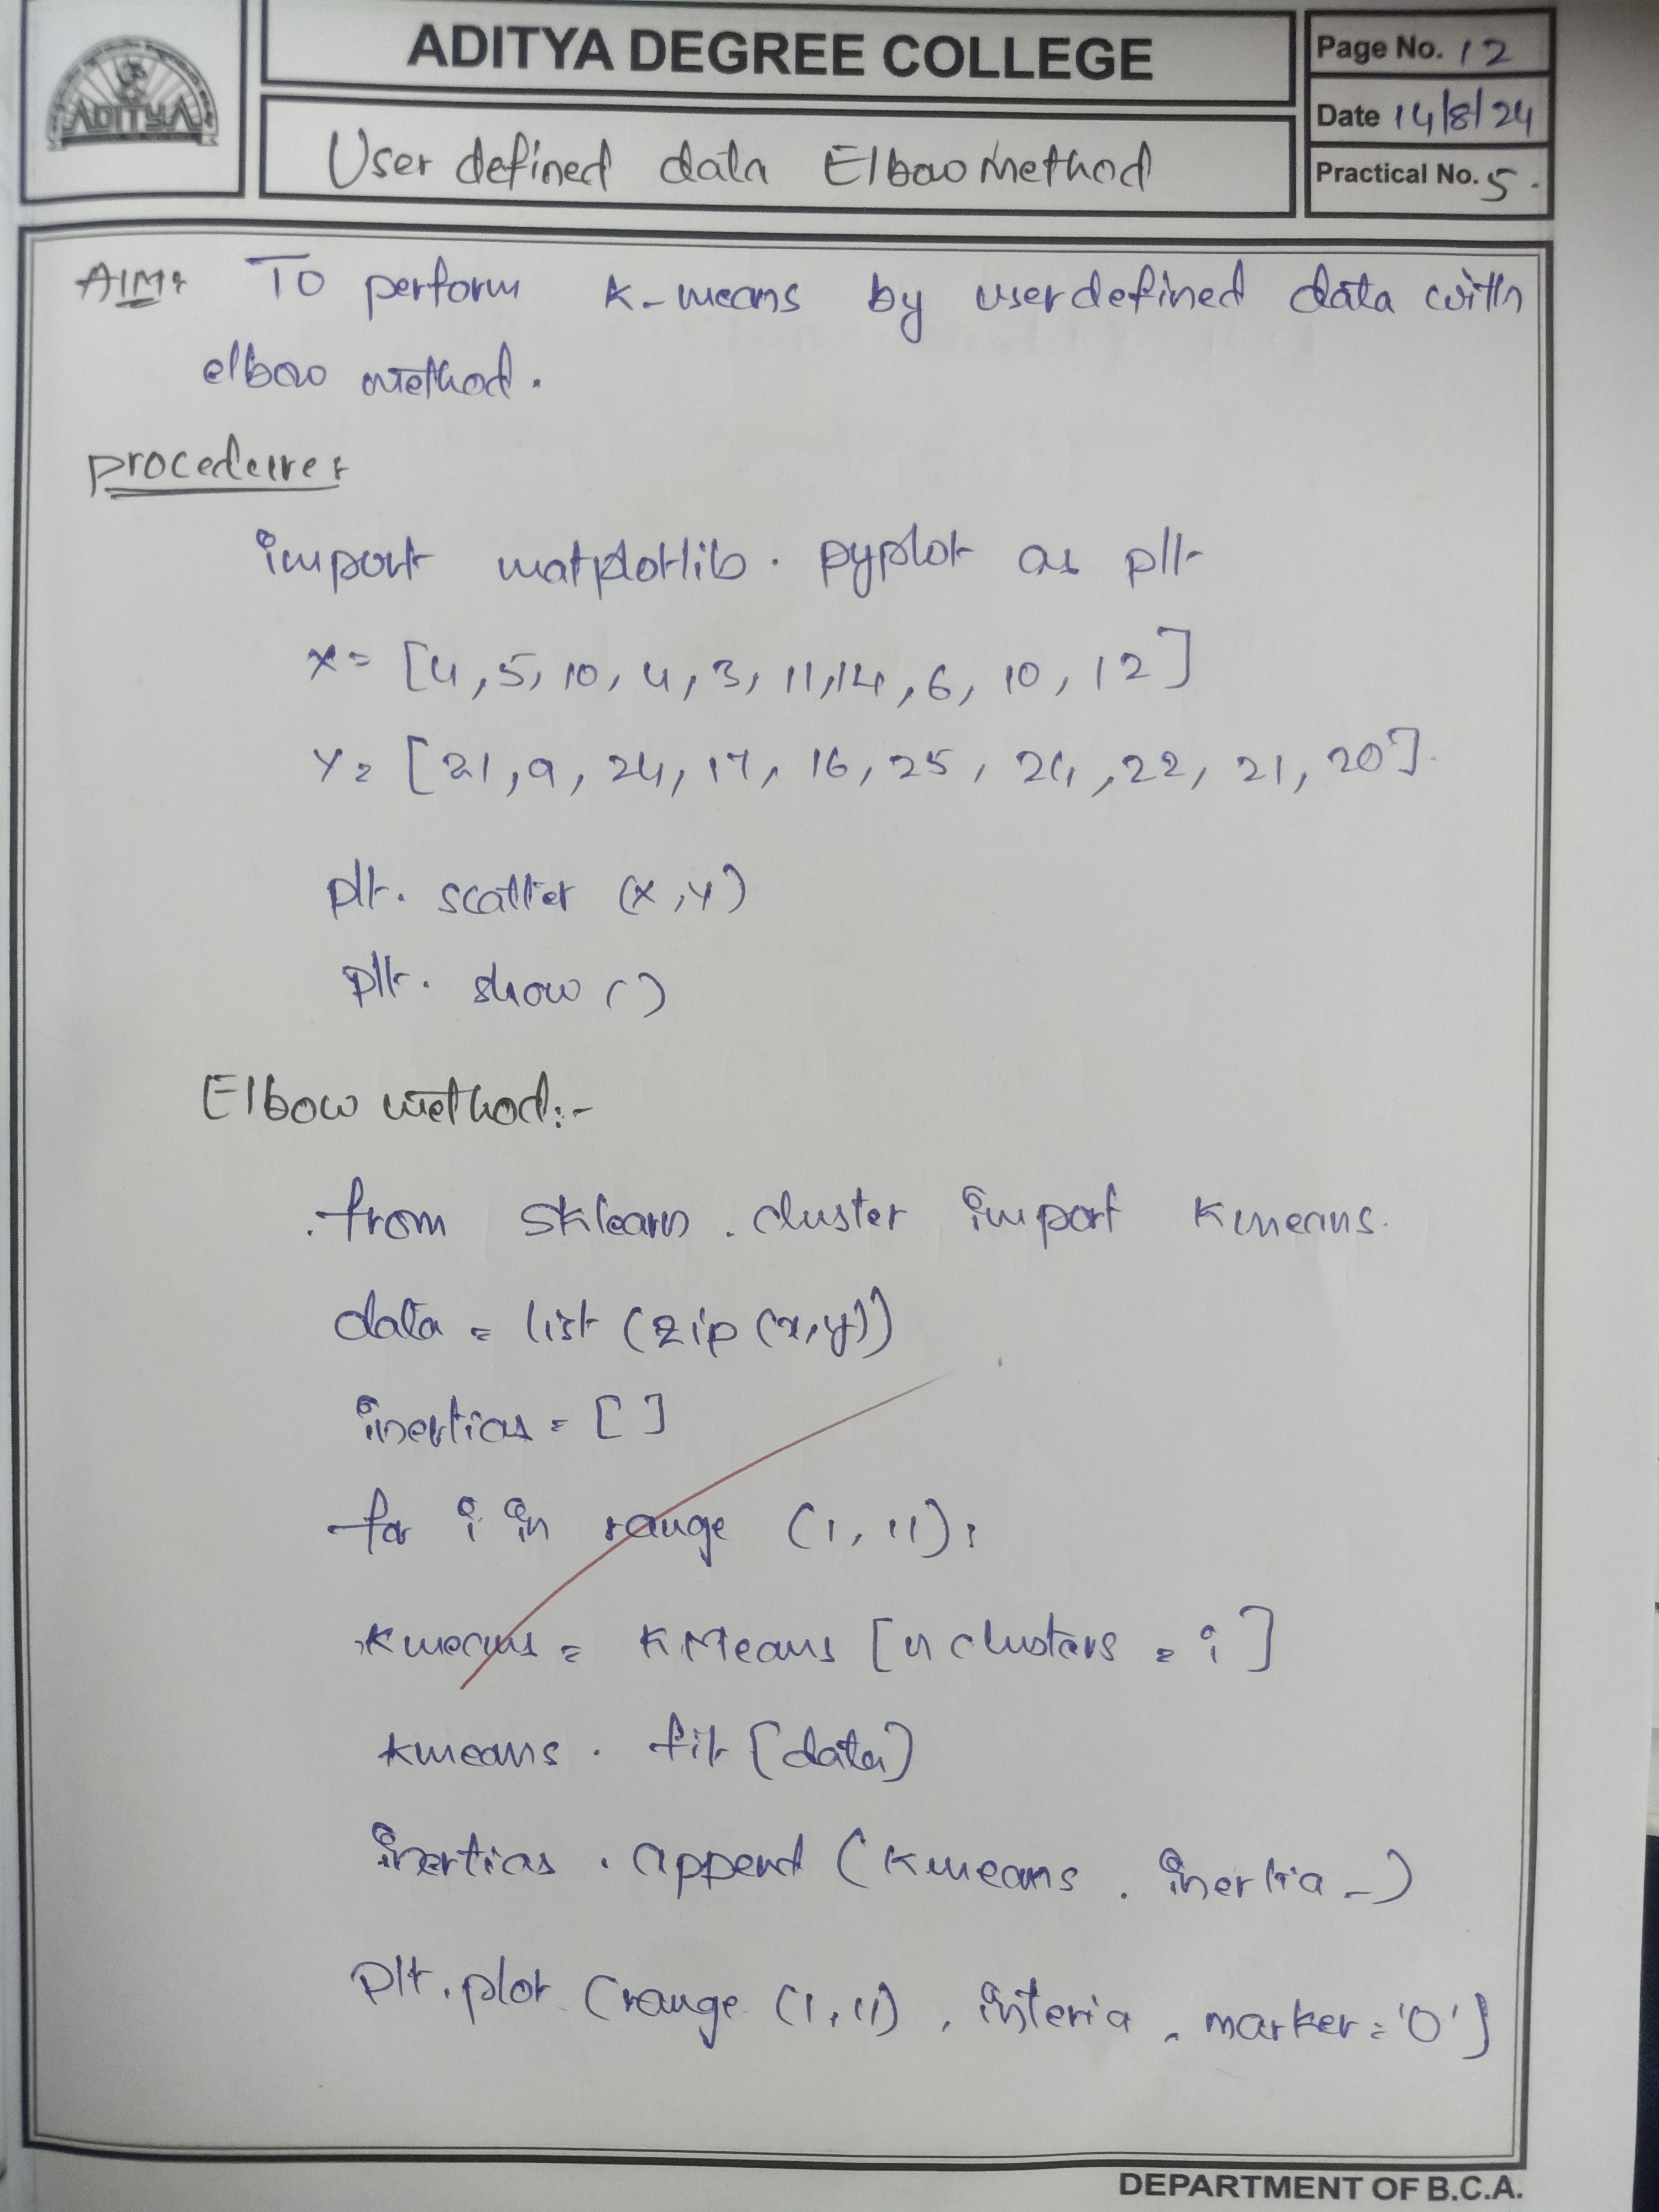 ADITYA
ADITYA DEGREE COLLEGE
Page No. 12
Date 14/8/24
Practical No. 5.
User defined data Elbow Method
AIM: To perform K-means by userdefined data with
elbow method.
procedure:
import matplotlib. pyplot as plt
x= [4,5,10,4,3,11,14,6,10,12]
Y= [21,9,24,17,16,25,24,22,21,20].
plt. scatter (x,y)
plt. show ()
Elbow method:-
from sklearn .cluster import Kmeans.
data = list (zip (x,y))
inertias = [ ]
for i in range (1,11):
kmeans = KMeans [n clusters = i]
kmeans . fit [data]
inertias . append (kmeans . inertia_)
plt.plot (range (1,11), interia, marker='O']
DEPARTMENT OF B.C.A.